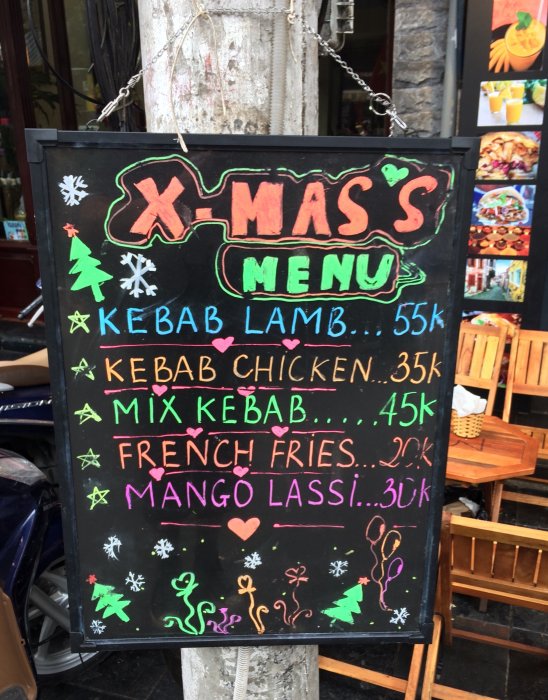 X-MAS'S
MENU
KEBAB LAMB... 55K
KEBAB CHICKEN...35K
MIX KEBAB.....45K
FRENCH FRIES...20K
MANGO LASSI...30K